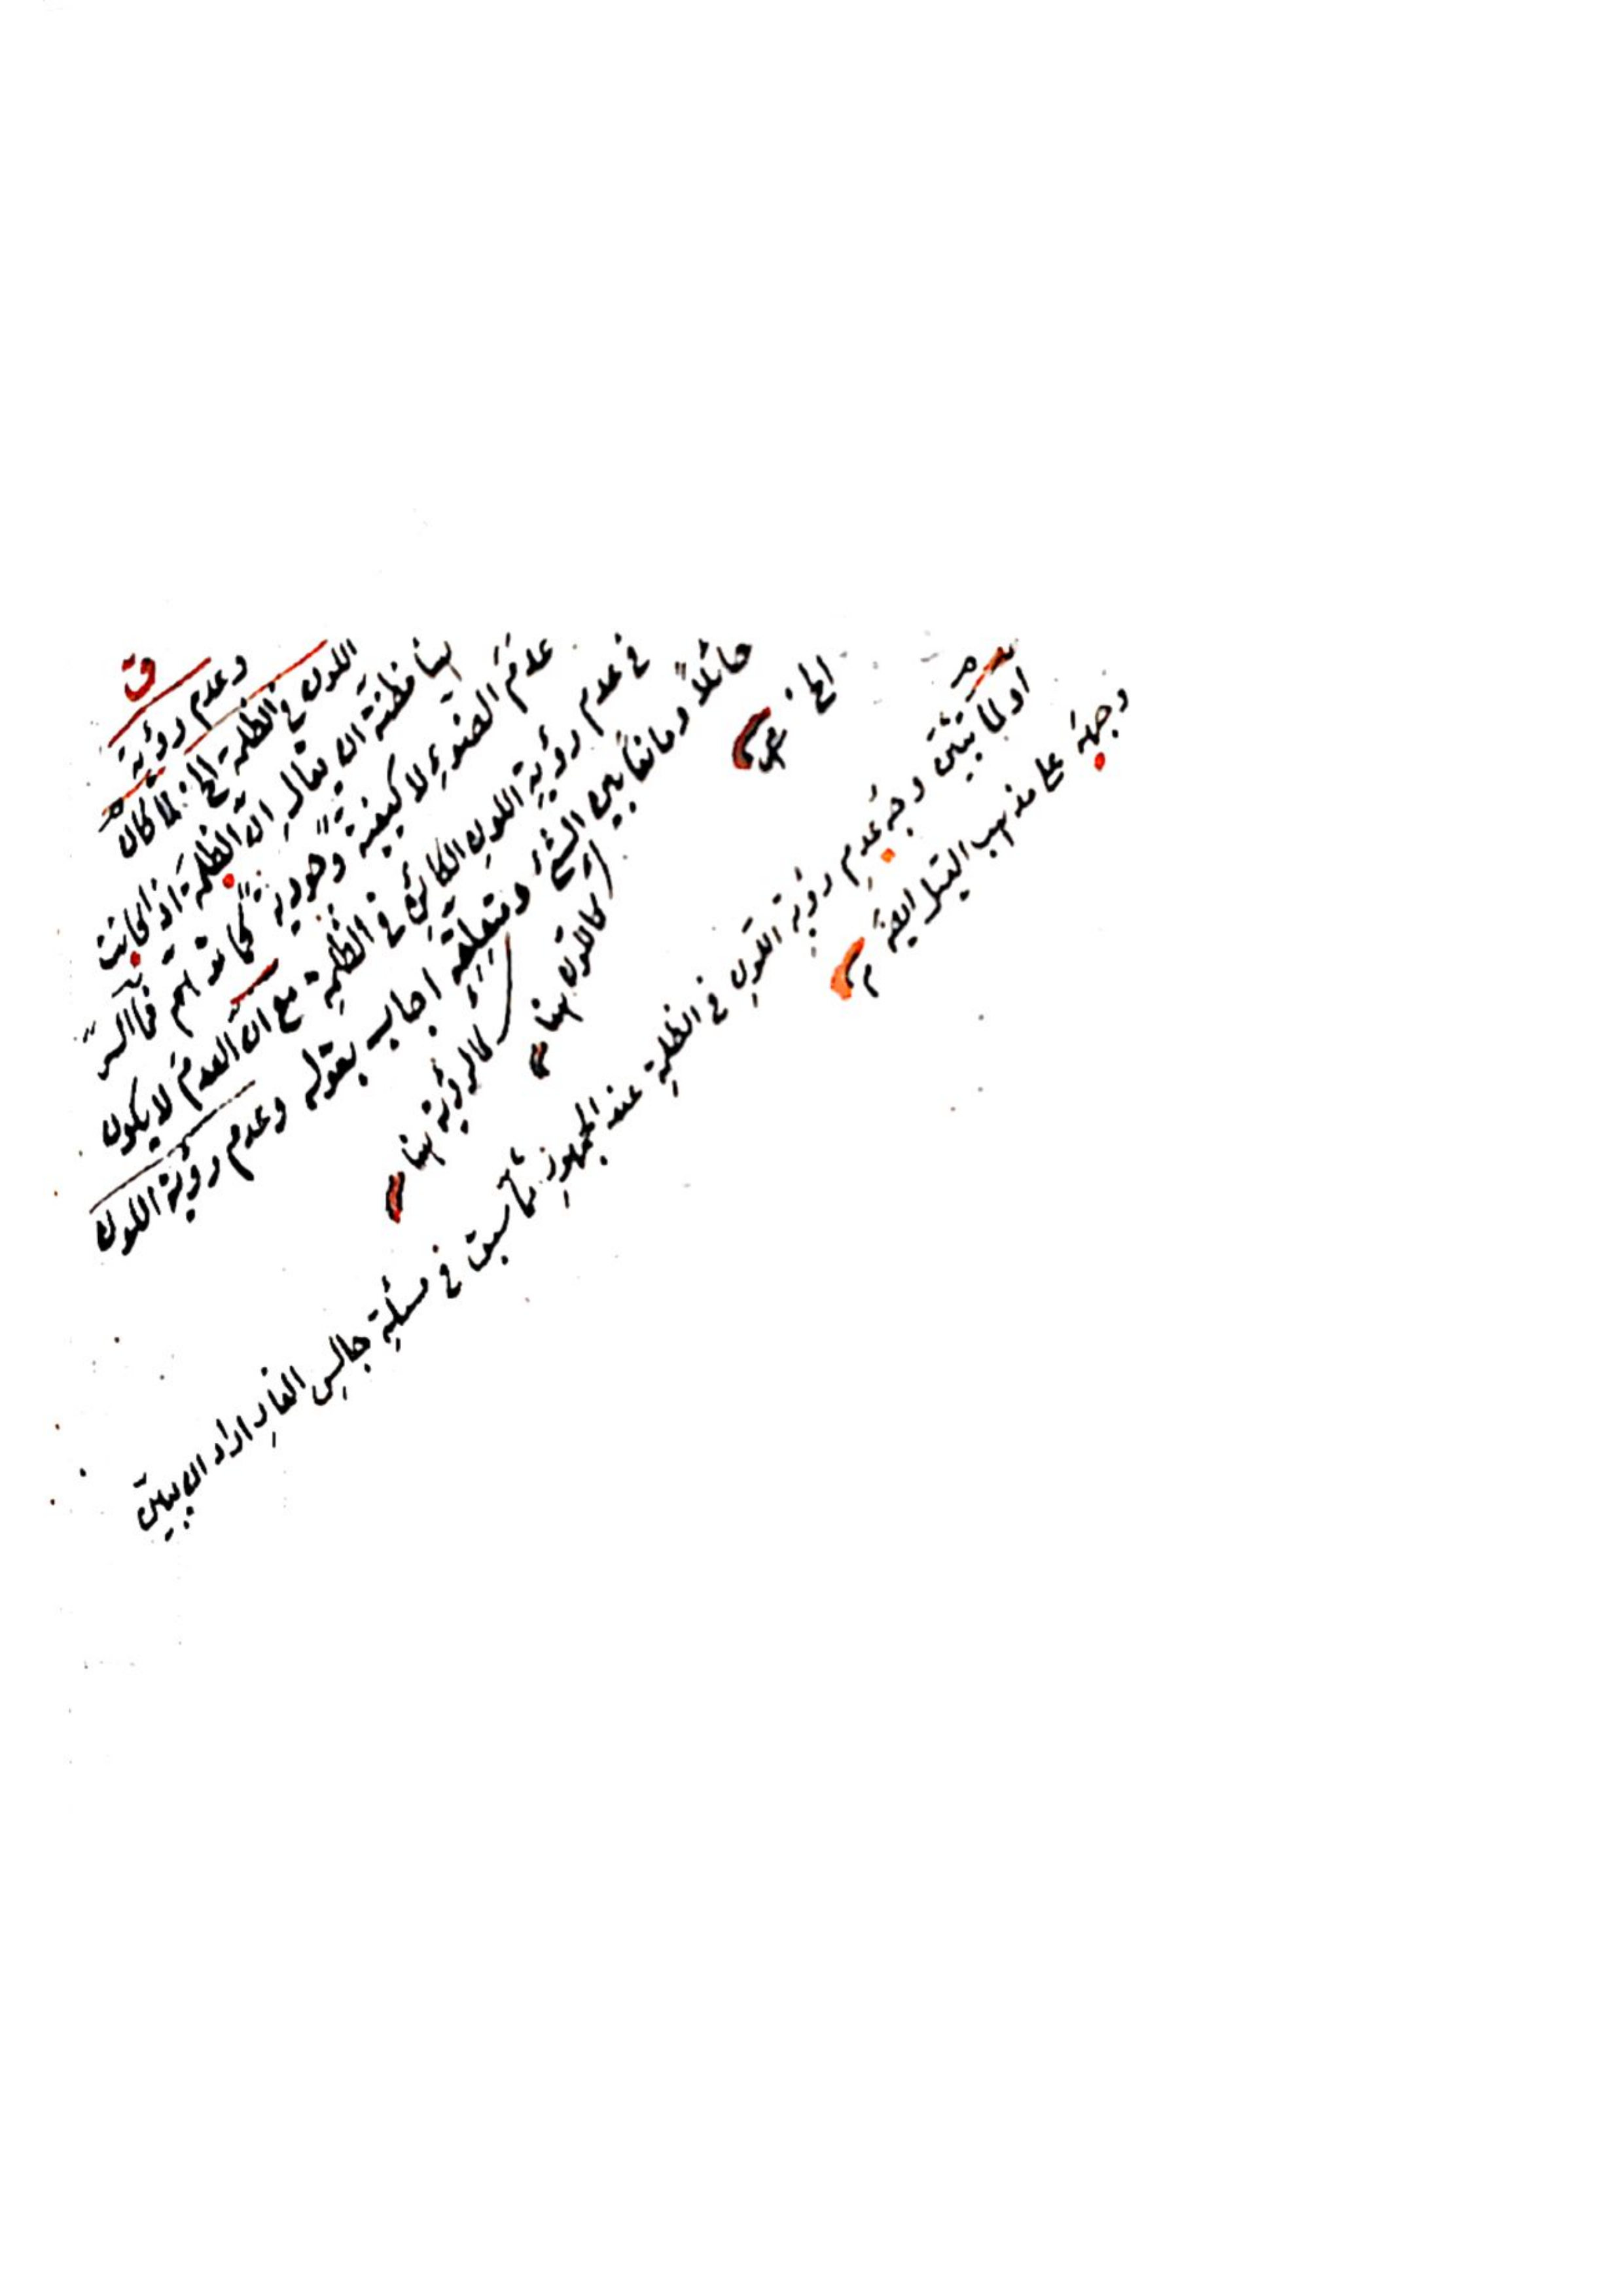 ق
وعدم رؤية
اللون في الظلمة الخ: لما كان
هنا مظنة ان يقال ان الظلمة اذا كانت
عدم الضوء لا كيفية وجودية كما هو فما السر
في عدم رؤية اللون الكائن في الظلمة مع ان العدم لا يكون
حائلا ومانعا بين الشئ ومتعلقه اجاب بقوله وعدم رؤية اللون
الخ:
كاللون هنا
كالرؤية هنا
او لما تبين وجه عدم رؤية اللون في الظلمة عند الجمهور كما سبق في مسئلة جالس الغار اراد ان يبين
وجهه على مذهب القيل